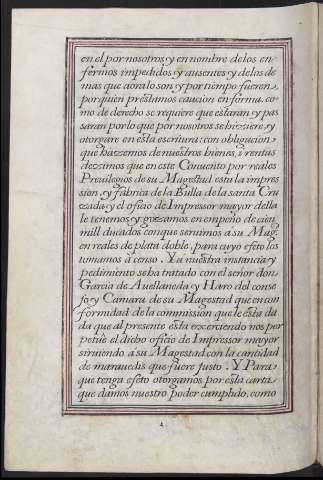 en el por nosotros y en nombre delos en-
fermos impedidos y ausentes y delos de
mas que aora lo son y por tiempo fueren,
por quien prestamos caucion en forma, co-
mo de derecho se requiere que estaran y pas
saran por lo que por nosotros se hizziere y
otorgare en esta escritura: con obligacion
que hazzemos de nuestros bienes, i rentas
dezzimos que en este Conuento por reales
Preuilegios de su Magestad esta la impres
sion, y fabrica de la Bulla de la santa Cru
zzada, y el oficio de Impressor mayor della
le tenemos y gozzamos en empeño de cien
mill ducados con que seruimos a su Mag.
en reales de plata doble, para cuyo efeto los
tomamos a censo. Y a nuestra instancia y
pedimiento se ha tratado con el señor don
Garcia de Auellaneda y Haro del conse
jo y Camara de su Magestad que en con
formidad de la commission que le esta da
da que al presente esta exerciendo nos per
petue el dicho oficio de Impressor mayor
siruiendo a su Magestad con la cantidad
de marauedis que fuere justo. Y Para
que tenga efeto otorgamos por esta carta
que damos nuestro poder cumplido, como